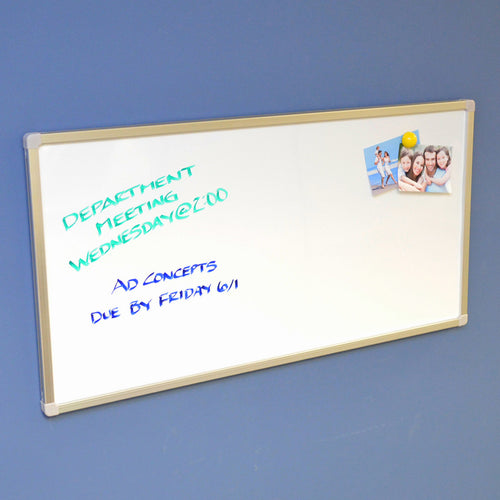 DEPARTMENT
MEETING
WEDNESDAY@2:00
AD CONCEPTS
DUE BY FRIDAY 6/1